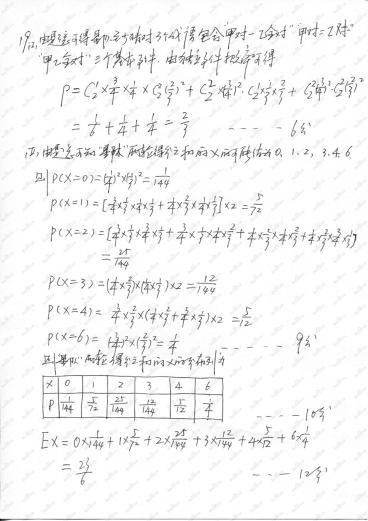 19.(I)由题意可得星队至少猜对3个成语包含"甲对一乙全对""甲全对一乙对一"
"甲乙全对"三个基本事件.由独立事件概率可得
P=C₂¹×3/4×1/4×C₂²(2/3)²+C₂²×(3/4)²·C₂¹×2/3×1/3+C₂²(3/4)²·C₂²(2/3)²
=1/6+1/4+1/4=2/3 ----6分
(II)由题意可知"星队"两轮得分之和为X的可能值为0,1,2,3,4,6
则P(X=0)=(1/4)²×(1/3)²=1/144
P(X=1)=[3/4×1/3×1/4×1/3+1/4×2/3×1/4×1/3]×2=5/72
P(X=2)=[3/4×1/3×3/4×1/3+3/4×1/3×1/4×2/3+1/4×2/3×3/4×1/3+1/4×2/3×1/4×2/3]
=25/144
P(X=3)=(3/4×2/3)×(1/4×1/3)×2=12/144
P(X=4)=3/4×2/3×(3/4×1/3+1/4×2/3)×2=5/12
P(X=6)=(3/4)²×(2/3)²=1/4 -----9分
则"星队"两轮得分之和为X的分布列为
X 0 1 2 3 4 6
P 1/144 5/72 25/144 12/144 5/12 1/4 ----10分
EX=0×1/144+1×5/72+2×25/144+3×12/144+4×5/12+6×1/4
=23/6 ---12分